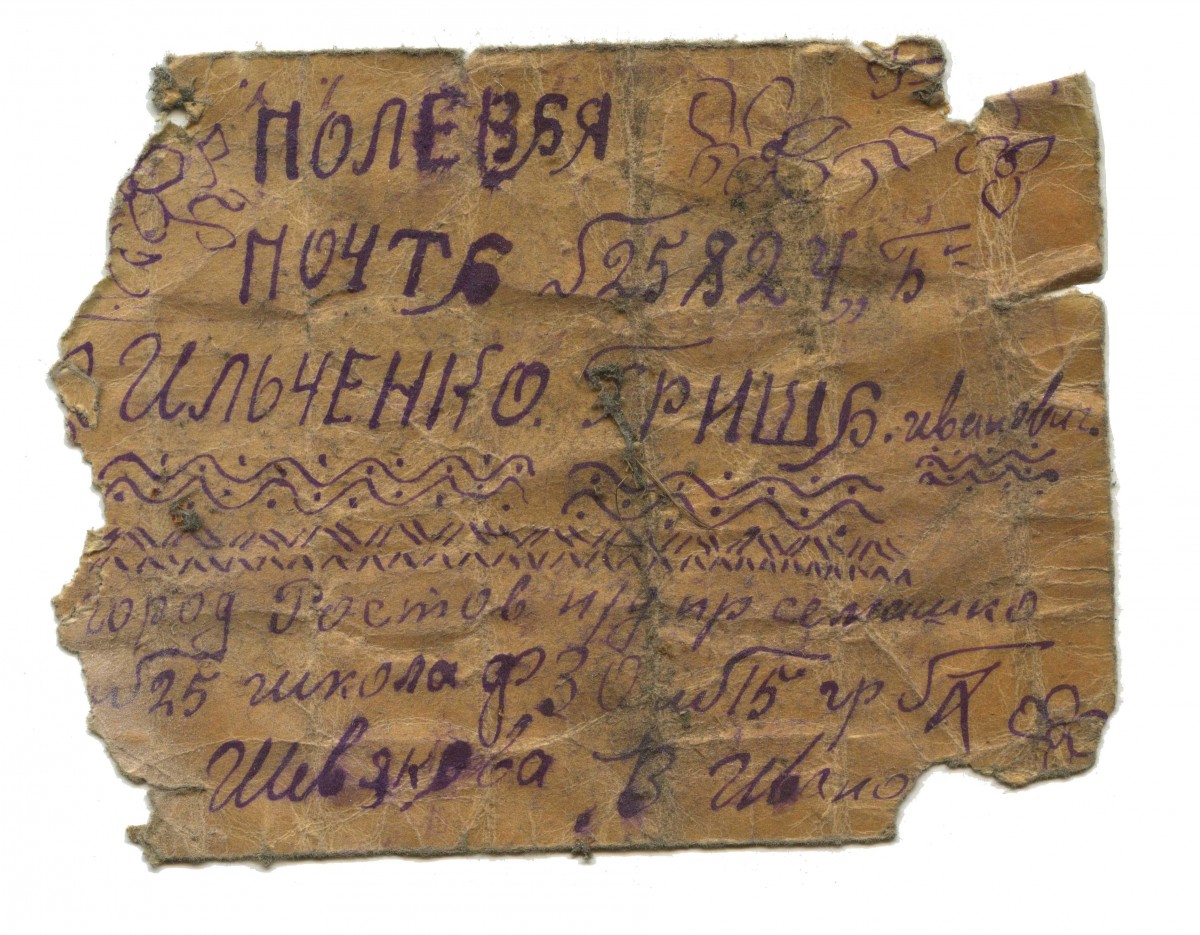 ПОЛЕВАЯ
ПОЧТА 25824 „Б"
ИЛЬЧЕНКО. ГРИША. иванович.
город Ростов н/д пр семашко
25 школа ФЗО №15 гр
Шевякова В Ивано